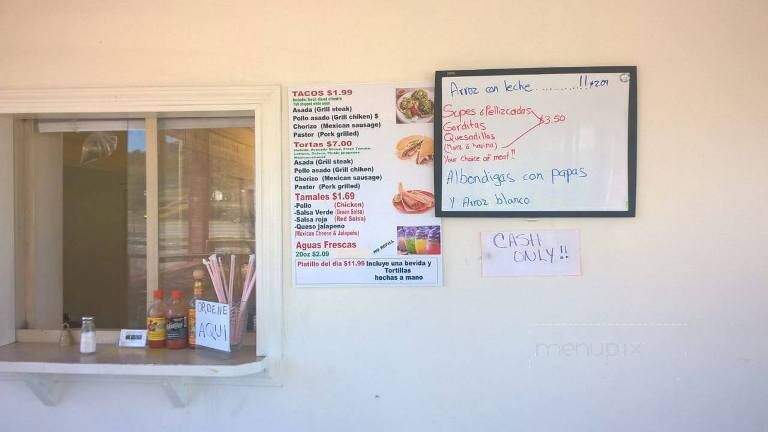 TACOS $1.99
Asada (Grill steak)
Pollo asado (Grill chiken) $
Chorizo (Mexican sausage)
Pastor (Pork grilled)
Tortas $7.00
Asada (Grill steak)
Pollo asado (Grill chiken)
Chorizo (Mexican sausage)
Pastor (Pork grilled)
Tamales $1.69
-Pollo (Chicken)
-Salsa Verde (Green Salsa)
-Salsa roja (Red Salsa)
-Queso jalapeno
(Mexican Cheese & Jalapeño)
Aguas Frescas
20oz $2.09
NO REFILL
Platillo del dia $11.99 Incluye una bevida y
Tortillas
hechas a mano
Arroz con leche..........!! $2.09
Supes ó Pellizcadas
Gorditas
Quesadillas
$3.50
Your choice of meat!!
Albondigas con papas
y Arroz blanco
CASH
ONLY!!
ORDENE
AQUI
menupix